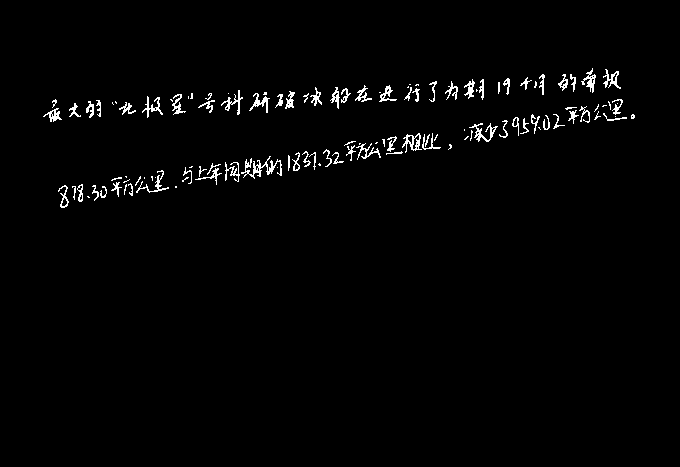 最大的“北极星”号科研破冰船在进行了为期19个月的南极
878.30平方公里.与上年同期的1837.32平方公里相比，减少3959.02平方公里。